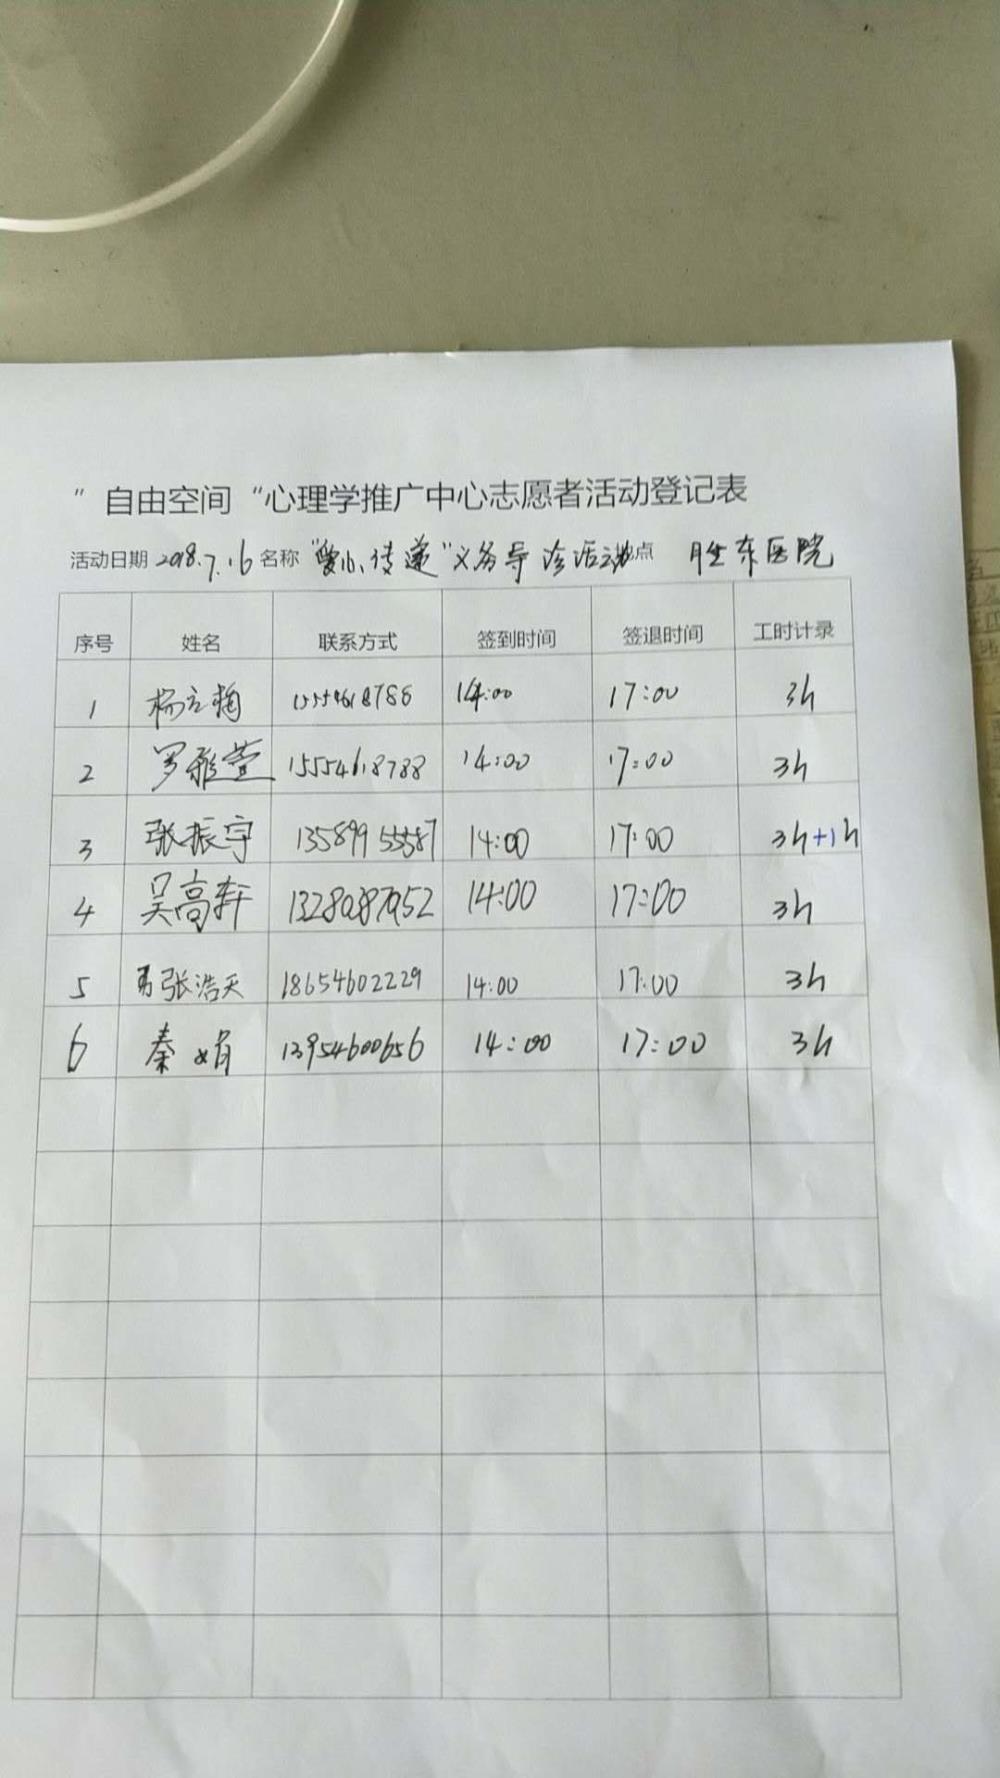 "自由空间"心理学推广中心志愿者活动登记表
活动日期 2018.7.16 名称 "爱心传递"义务导诊活动 地点 胜东医院
序号 姓名 联系方式 签到时间 签退时间 工时计录
1 杨 15554618786 14:00 17:00 3h
2 罗雅萱 15554618788 14:00 17:00 3h
3 张振宇 13589955587 14:00 17:00 3h+1h
4 吴高轩 13280387952 14:00 17:00 3h
5 张浩天 18654602229 14:00 17:00 3h
6 秦娟 13954600656 14:00 17:00 3h